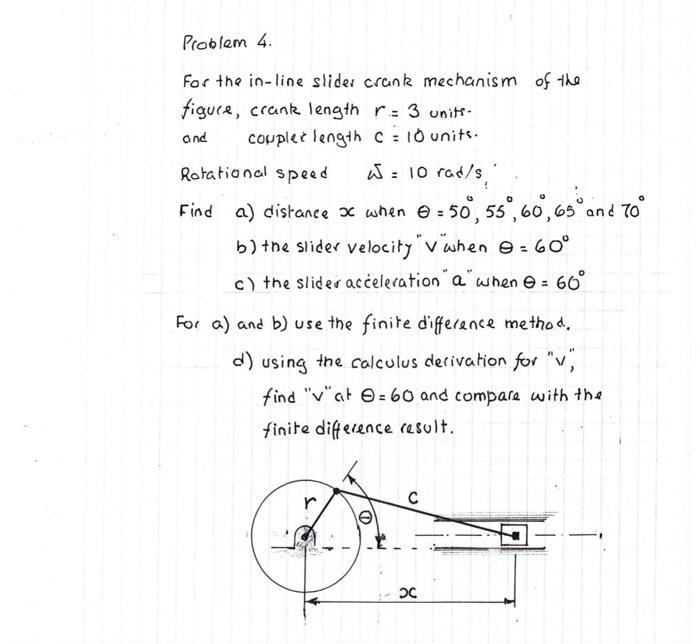 Problem 4.
For the in-line slider crank mechanism of the
figure, crank length r = 3 units.
and coupler length c = 10 units.
Rotational speed ω = 10 rad/s.
Find a) distance x when θ = 50°, 55°, 60°, 65° and 70°
b) the slider velocity "v" when θ = 60°
c) the slider acceleration "a" when θ = 60°
For a) and b) use the finite difference method.
d) using the calculus derivation for "v",
find "v" at θ = 60 and compare with the
finite difference result.
r
c
θ
x